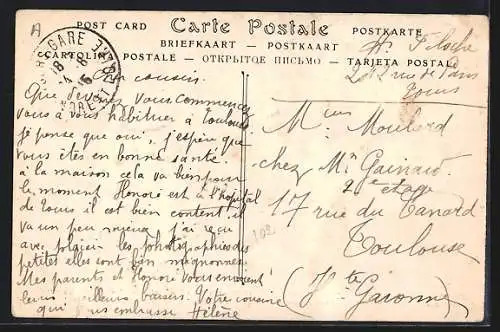 POST CARD Carte Postale POSTKARTE
BRIEFKAART - POSTKAART
POSTALE - ОТКРЫТОЕ ПИСЬМО - TARJETA POSTAL
GARE
BREST
cousin
Que devenez vous commencez
vous à vous habituer à Toulouse
je pense que oui, j'espère que
vous êtes en bonne santé
à la maison cela va bien pour
le moment Honoré est à l'hôpital
de Tours il est bien content il
va un peu mieux j'ai reçu
avec plaisir les photographies des
petites elles sont bien mignonnes
Mes parents et Honoré vous envoient
leurs meilleurs baisers. Votre cousine
qui vous embrasse Hélène
rue de Paris
Tours
Moulard
chez Mr Gainard
2e étage
17 rue du Canard
Toulouse
(Hte Garonne)